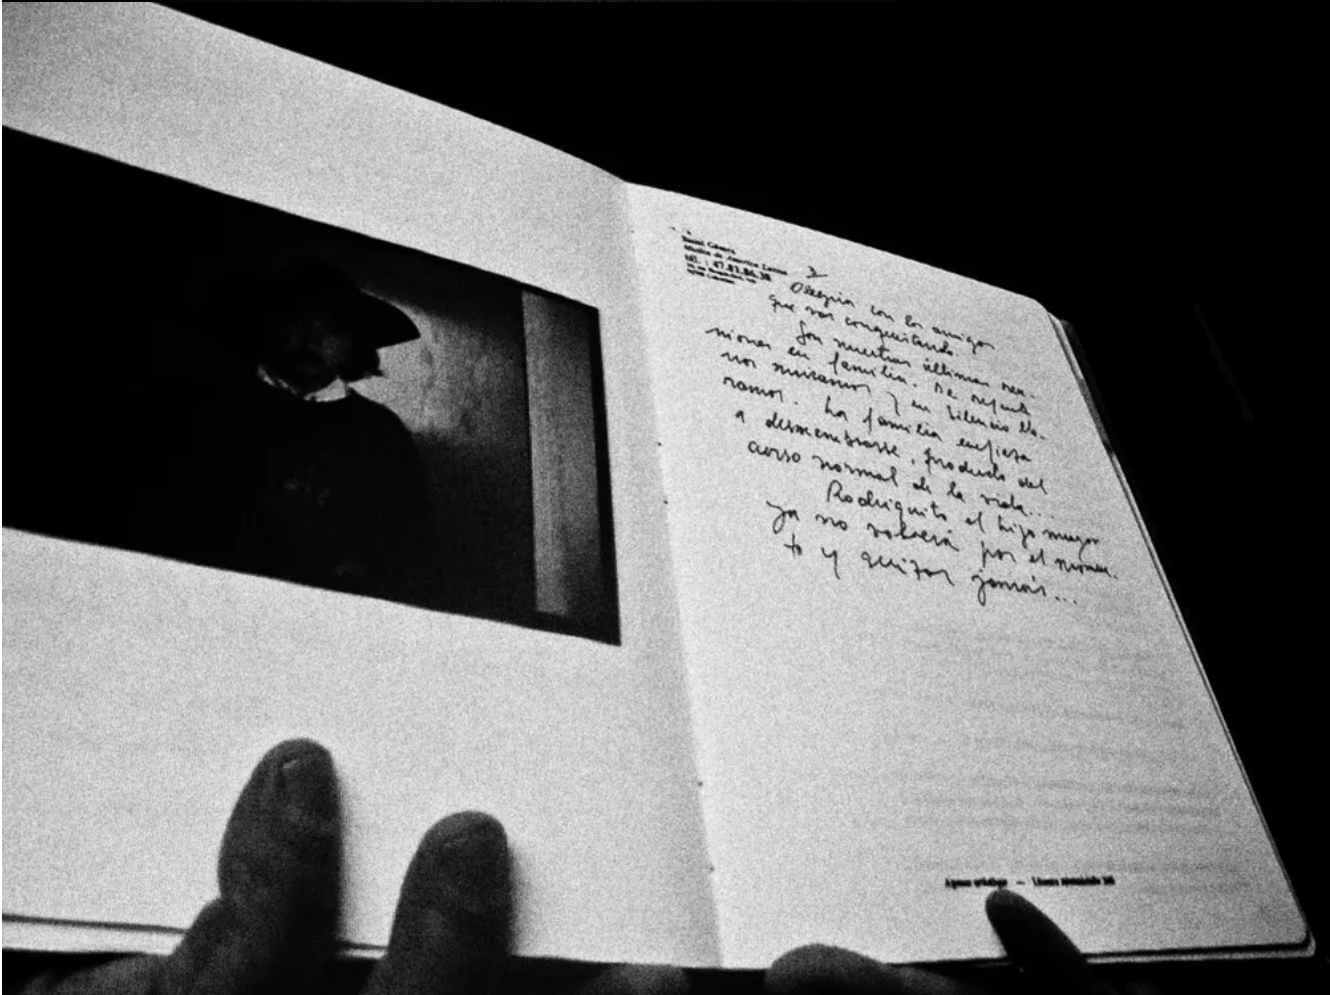 Musica de America Latina
Tél. : 47.81.86.38
3
Alegria con los amigos
que vas conquistando.
Son nuestras últimas reu-
niones en familia. De repente
nos miramos y en silencio llo-
ramos. La familia empieza
a desmembrarse, producto del
curso normal de la vida...
Rodriguito el hijo mayor
ya no volverá por el momen-
to y quizas jamás...